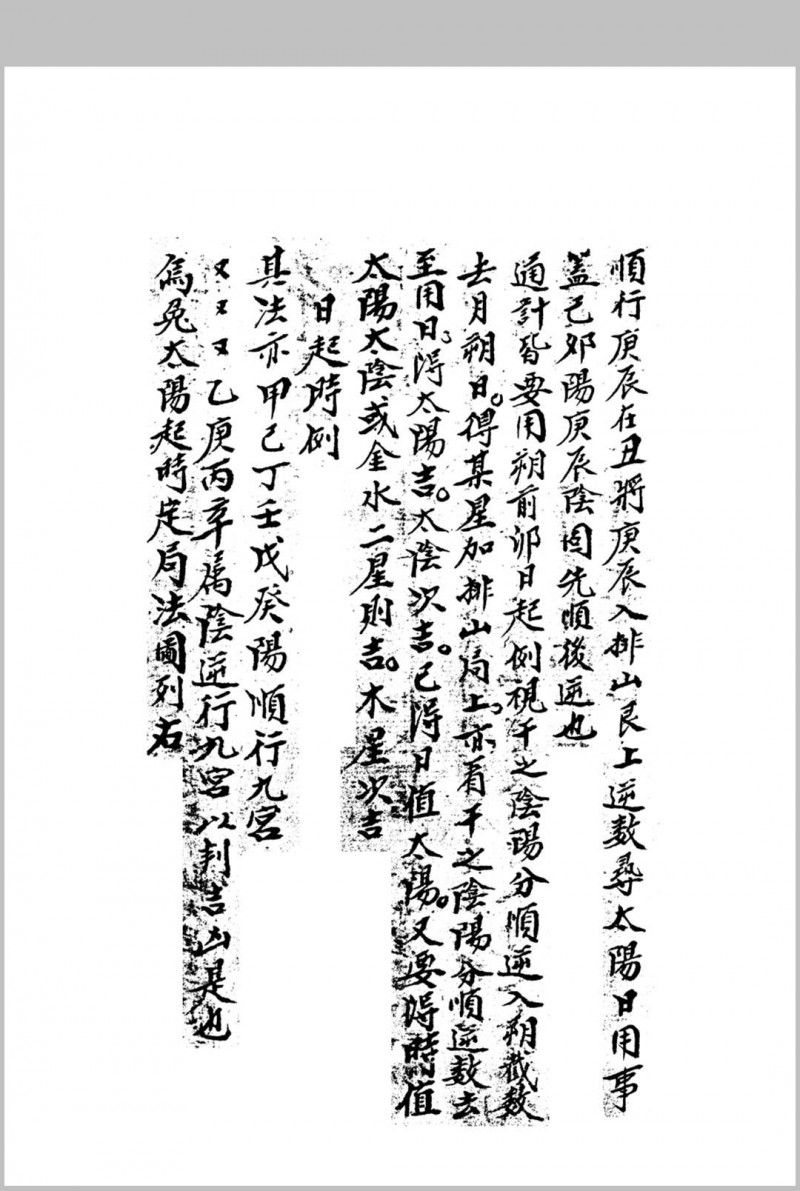 順行庚辰在丑將庚辰入排山艮上逆数尋太陽日用事
蓋己卯陽庚辰陰因先順後逆也
通計皆要用朔前卯日起例視干之陰陽分順逆入朔截数
去月朔日。得某星加排山局上亦看干之陰陽分順逆数去
至用日得太陽吉。太陰次吉。已得日值太陽。又要得時值
太陽太陰或金水二星則吉。木星次吉
日起時例
其法亦甲己丁壬戊癸陽順行九宮
又又又乙庚丙辛屬陰逆行九宮以判吉凶是也
烏兔太陽起時定局法圖列右